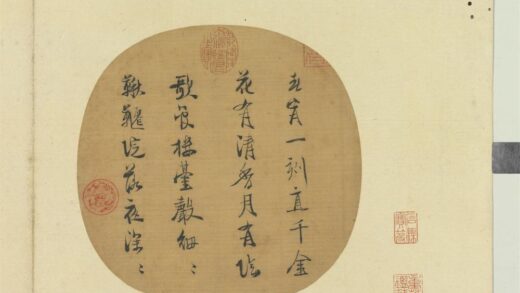 春宵一刻直千金
花有清香月有陰
歌管樓臺聲細〻
鞦韆院落夜深〻